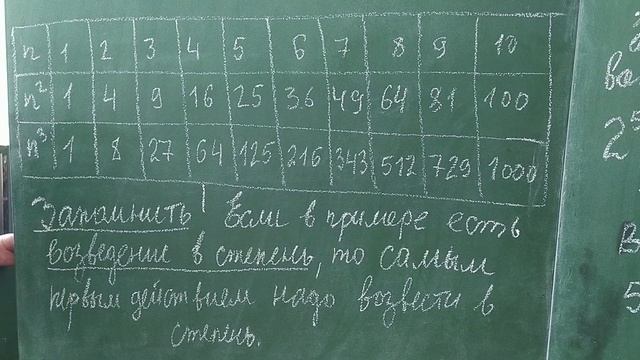 n 1 2 3 4 5 6 7 8 9 10
n² 1 4 9 16 25 36 49 64 81 100
n³ 1 8 27 64 125 216 343 512 729 1000
Запомнить! Если в примере есть
возведение в степень, то самым
первым действием надо возвести в
степень.
2⁵
В
5